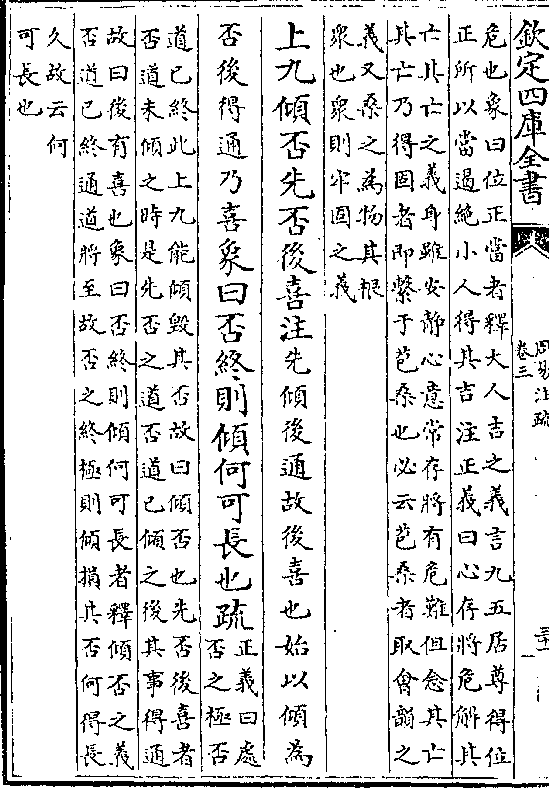 欽定四庫全書
周易注疏
卷三
危也象曰位正當者釋大人吉之義言九五居尊得位
正所以當遏絶小人得其吉注正義曰心存將危解其
亡其亡之義身雖安静心意常存將有危難但念其亡
其亡乃得固者即繫于苞桑也必云苞桑者取會韻之
義又桑之為物其根
衆也衆則牢固之義
上九傾否先否後喜注先傾後通故後喜也始以傾為
否後得通乃喜象曰否終則傾何可長也疏
正義曰處
否之極否
道已終此上九能傾毁其否故曰傾否也先否後喜者
否道未傾之時是先否之道否道已傾之後其事得通
故曰後有喜也象曰否終則傾何可長者釋傾否之義
否道已終通道將至故否之終極則傾損其否何得長
久故云何
可長也